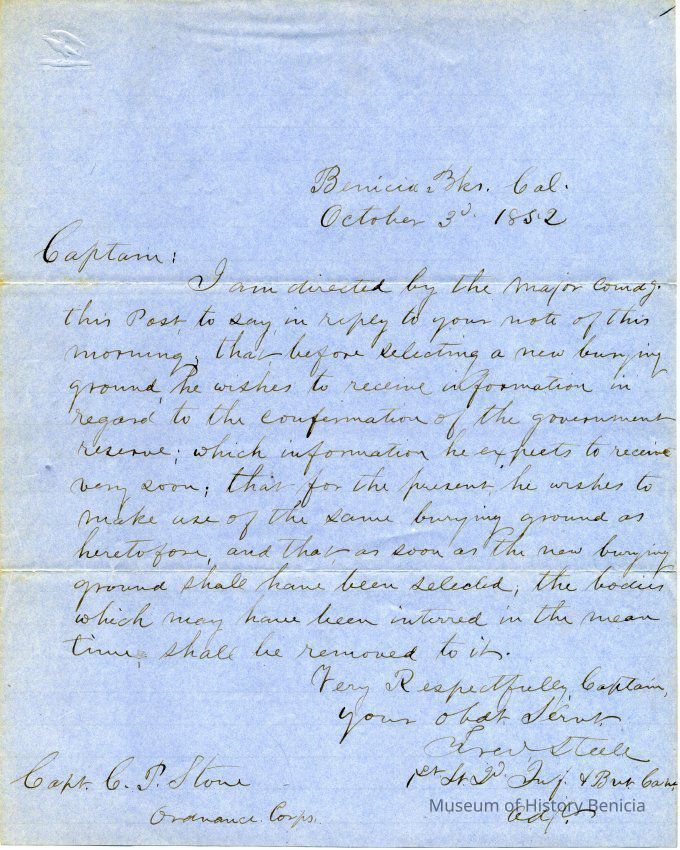 Benicia Bks. Cal.
October 3d. 1852
Captain:
I am directed by the Major comdg.
this Post to say in reply to your note of this
morning, that before selecting a new burying
ground, he wishes to receive information in
regard to the confirmation of the government
reserve; which information he expects to receive
very soon; that for the present, he wishes to
make use of the same burying ground as
heretofore, and that, as soon as the new burying
ground shall have been selected, the bodies
which may have been interred in the mean
time, shall be removed to it.
Very Respectfully, Captain,
your obdt Servt.
Fred Steele
1st Lt 2d. Inf. & Bvt Capt
Adjt.
Capt. C. P. Stone
Ordnance Corps.
Museum of History Benicia